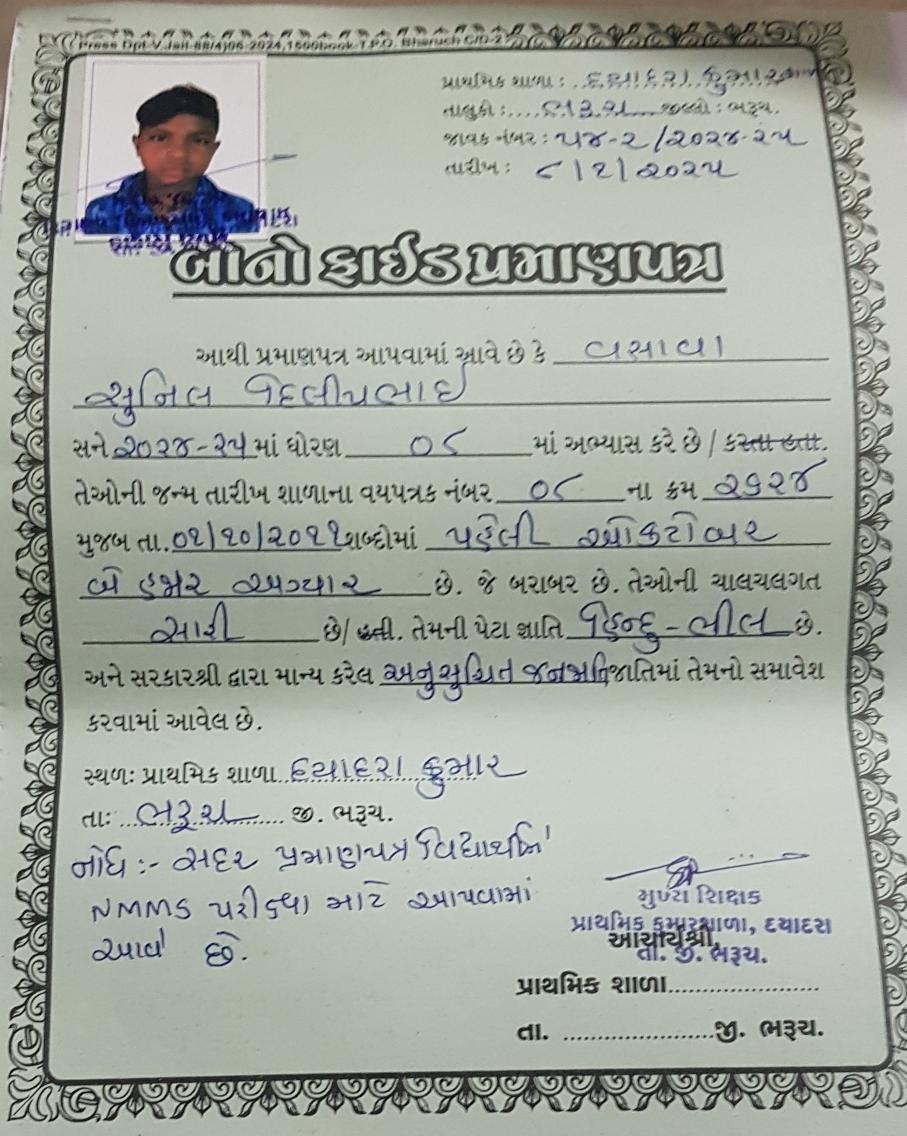 Press Dpt.V.Jail-88/4/06-2024,1500book-T.P.O. Bharuch C/D-2
પ્રાથમિક શાળા : દયાદરા કુમાર
તાલુકો : ભરૂચ જીલ્લો : ભરૂચ.
જાવક નંબર : ૫૪-૨/૨૦૨૪-૨૫
તારીખ : ૮/૨/૨૦૨૫
બોનોફાઈડ પ્રમાણપત્ર
આથી પ્રમાણપત્ર આપવામાં આવે છે કે વસાવા
સુનિલ દિલીપભાઈ
સને ૨૦૨૪-૨૫ માં ધોરણ ૦૮ માં અભ્યાસ કરે છે / કરતા હતા.
તેઓની જન્મ તારીખ શાળાના વયપત્રક નંબર ૦૮ ના ક્રમ ૨૬૨૪
મુજબ તા. ૦૧/૧૦/૨૦૧૧ શબ્દોમાં પહેલી ઓક્ટોબર
બે હજાર અગ્યાર છે. જે બરાબર છે. તેઓની ચાલચલગત
સારી છે/ હતી. તેમની પેટા જ્ઞાતિ હિન્દુ - ભીલ છે.
અને સરકારશ્રી દ્વારા માન્ય કરેલ અનુસુચિત જનજાતિ જાતિમાં તેમનો સમાવેશ
કરવામાં આવેલ છે.
સ્થળઃ પ્રાથમિક શાળા દયાદરા કુમાર
તાઃ ભરૂચ જી. ભરૂચ.
નોંધ :- સદર પ્રમાણપત્ર વિદ્યાર્થીને
NMMS પરીક્ષા માટે આપવામાં
આવે છે.
મુખ્ય શિક્ષક
પ્રાથમિક કુમારશાળા, દયાદરા
આચાર્યશ્રી,
તા. જી. ભરૂચ.
પ્રાથમિક શાળા
તા. જી. ભરૂચ.